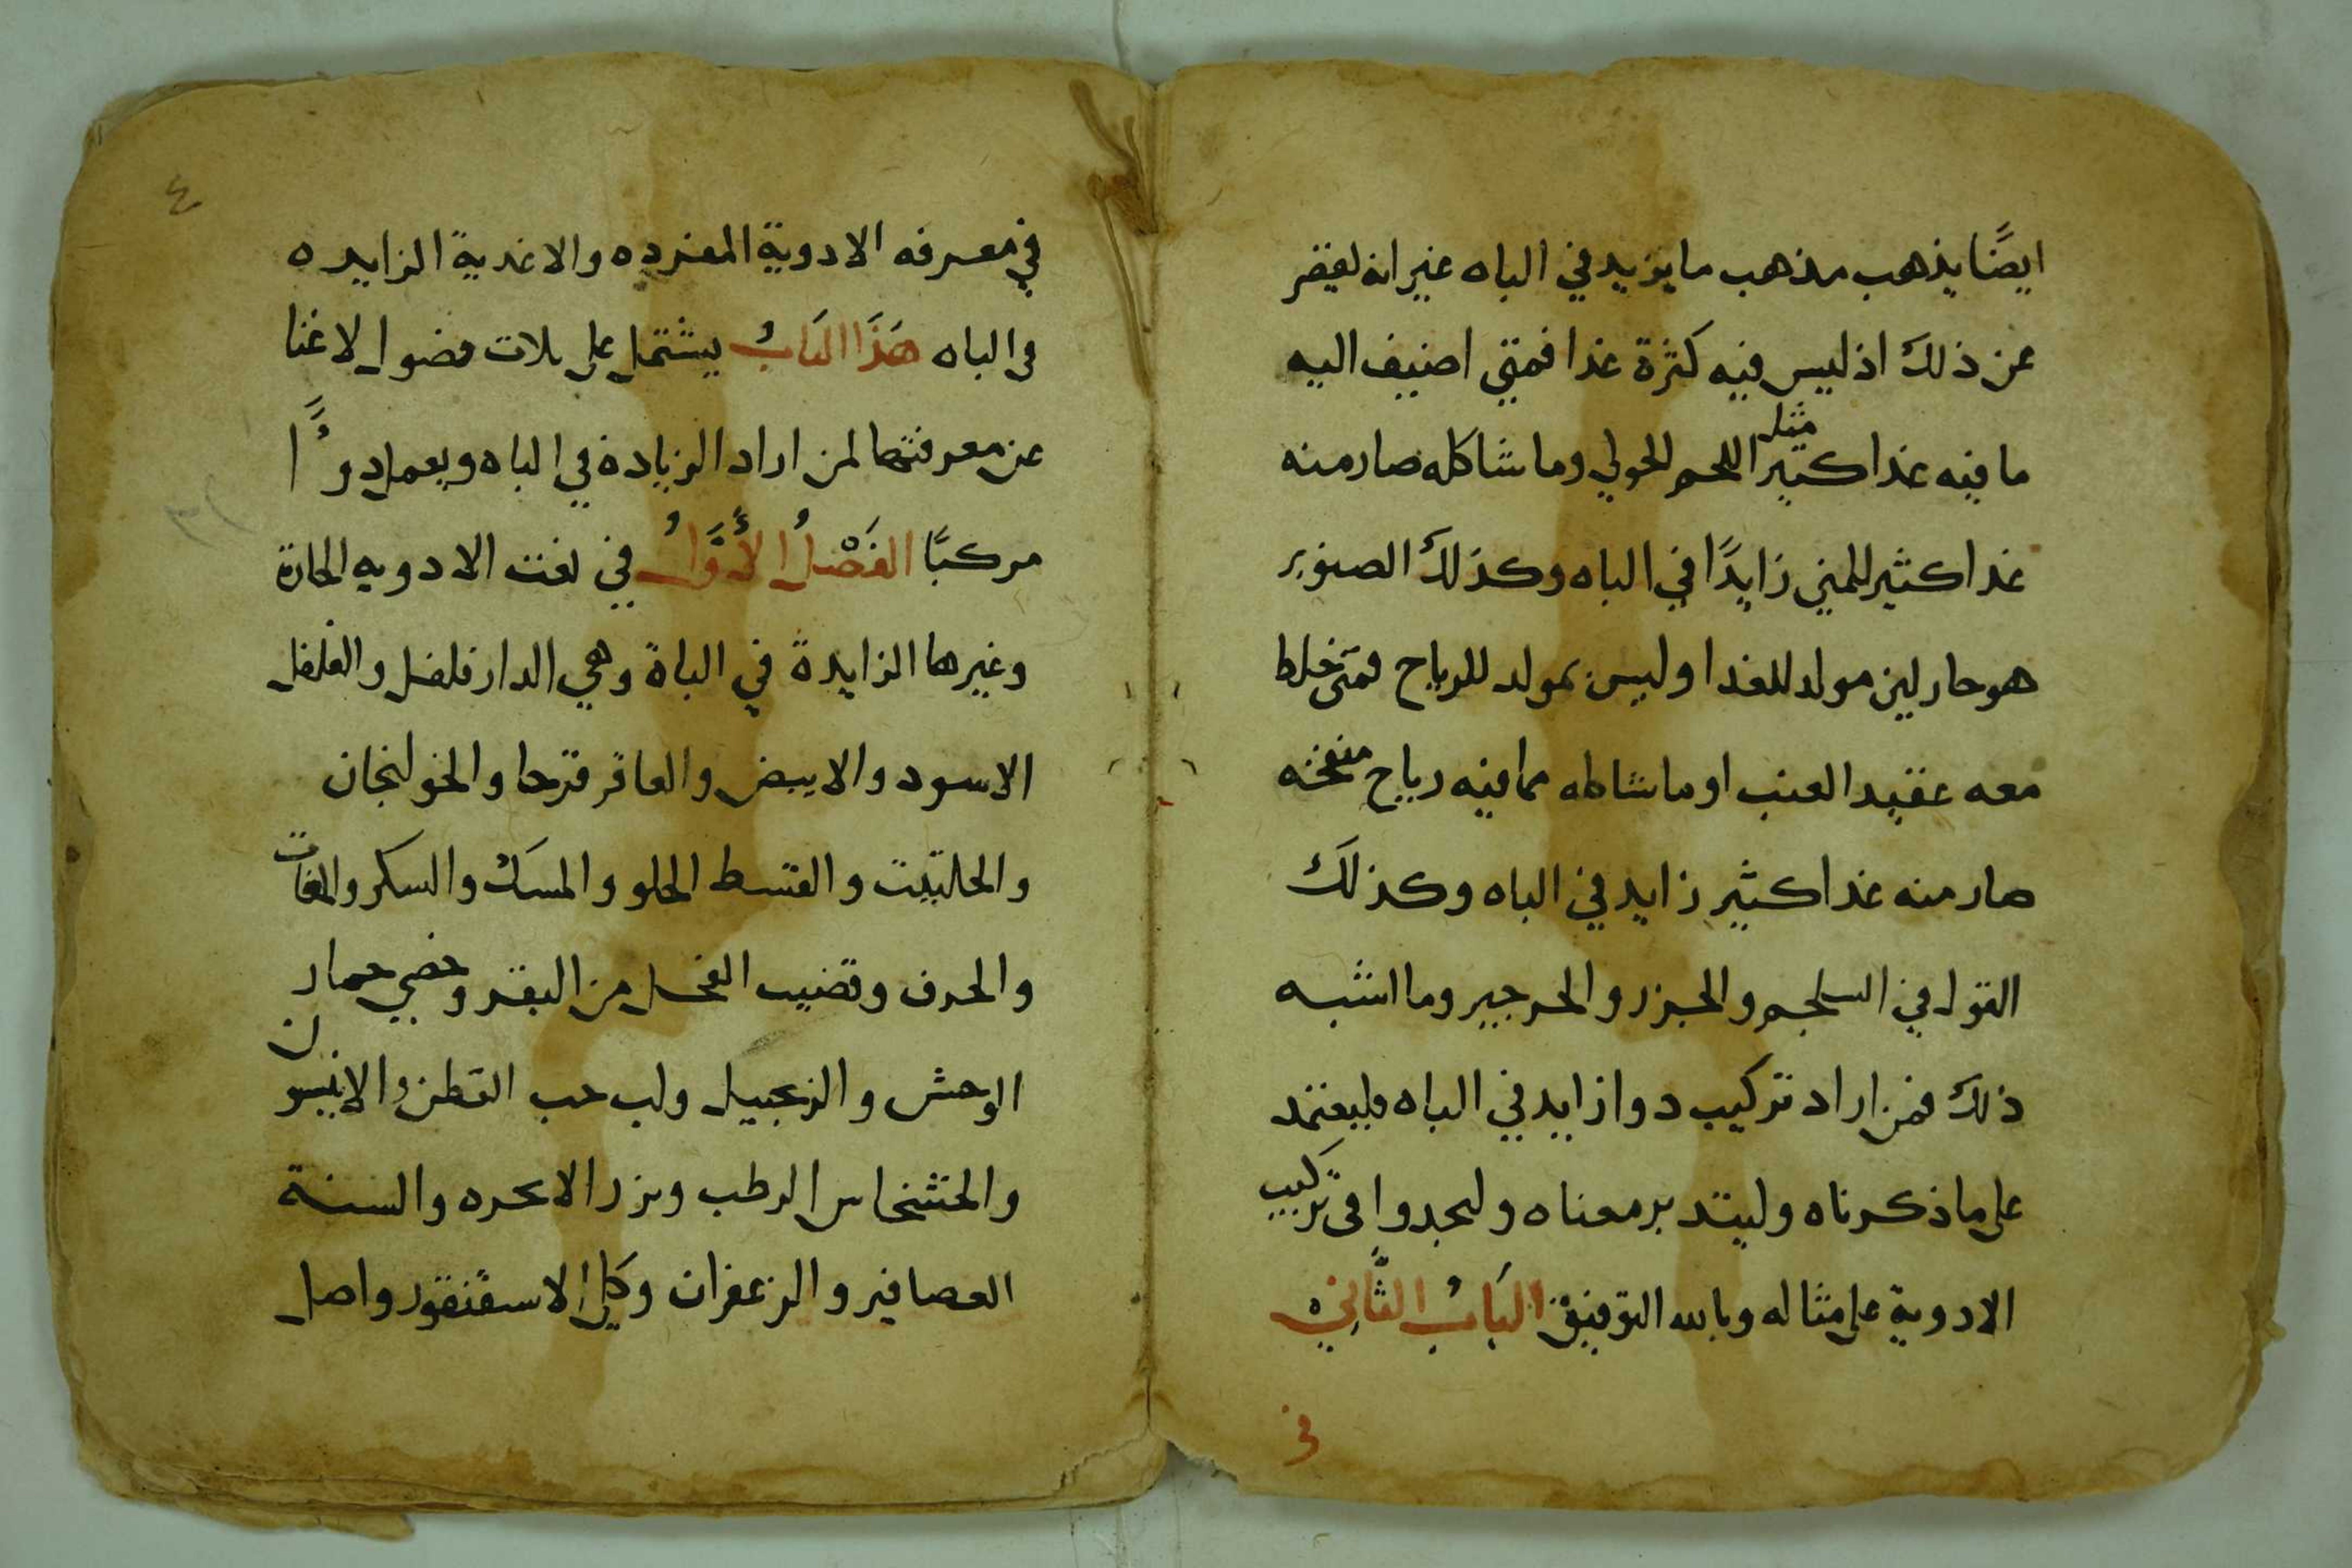 ايضًا يذهب مذهب ما يزيد في الباه غير انه يقصر
عن ذلك اذ ليس فيه كثرة غذا فمتى اضيف اليه
ما فيه غذا كثير مثل اللحم الحولي وما شاكله صار منه
غذا كثير للمني زايدًا في الباه وكذلك الصنوبر
هو حار لين مولد للغذا وليس بمولد للرياح فمتى خلط
معه عقيد العنب او ما شاكله مما فيه رياح منفخه
صار منه غذا كثير زايد في الباه وكذلك
القول في السلجم والجزر والجرجير وما اشبه
ذلك فمن اراد تركيب دوا زايد في الباه فليعتمد
على ما ذكرناه وليتدبر معناه وليحدوا في تركيب
الادوية على مثاله وبالله التوفيق البَابُ الثَّانِي
في
٤
في معرفه الادوية المفرده والاغدية الزايده
في الباه هَذَا البَابُ يشتمل على ثلاث فصول لا غنا
عن معرفتها لمن اراد الزيادة في الباه ويعمل دوًا
مركبًا الفَصْلُ الأَوَّلُ في نعت الادويه الحارة
وغيرها الزايدة في الباة وهي الدار فلفل والفلفل
الاسود والابيض والعاقر قرحا والخولنجان
والحلتيت والقسط الحلو والمسك والسكر والمغاث
والحرف وقضيب الفحل من البقر وخصي حمار
الوحش والزنجبيل ولب حب القطن والانيسون
والخشخاس الرطب وبزر الانجره والسنة
العصافير والزعفران وكلى الاسقنقور واصل